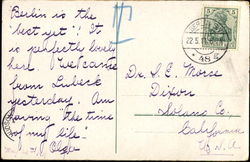 Berlin is the
"best yet"! It
is perfectly lovely
here. We came
from Lubeck
yesterday. Am
having "the time
of my life".
Olga
5
Dr. S. E. Morse
Dixon
Solano Co.
California
U.S.A.